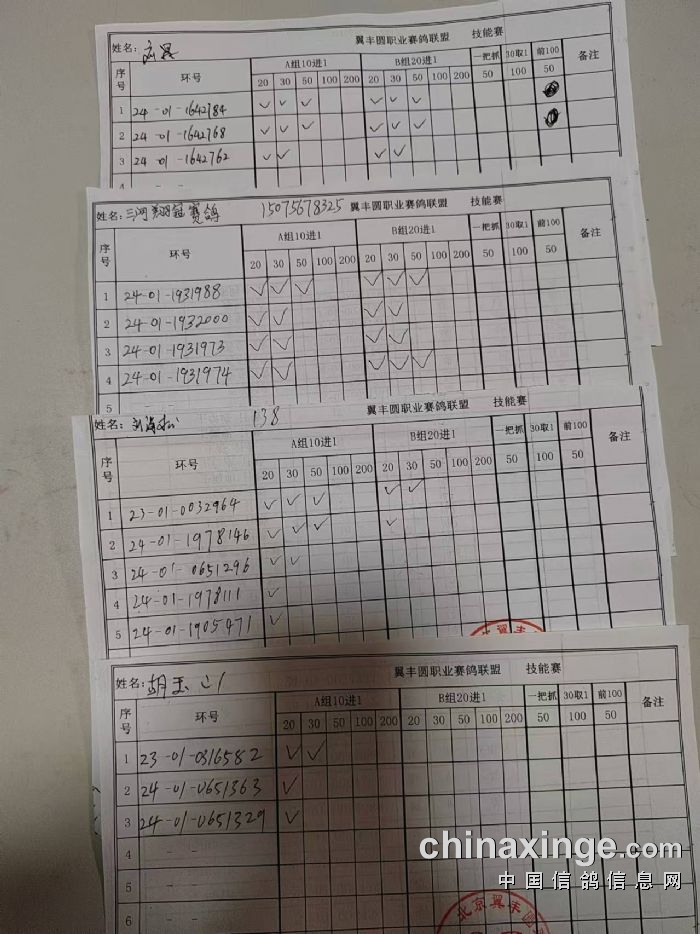 姓名: 翼丰圆职业赛鸽联盟 技能赛
序号 环号 A组10进1 B组20进1 一把抓 30取1 前100 备注
20 30 50 100 200 20 30 50 100 200 50 100 50
1 24-01-1642784 ✓ ✓ ✓ ✓ ✓ ✓
2 24-01-1642768 ✓ ✓ ✓ ✓ ✓ ✓
3 24-01-1642762 ✓ ✓ ✓ ✓
姓名: 三河翔冠赛鸽 15075678325 翼丰圆职业赛鸽联盟 技能赛
序号 环号 A组10进1 B组20进1 一把抓 30取1 前100 备注
20 30 50 100 200 20 30 50 100 200 50 100 50
1 24-01-1931988 ✓ ✓ ✓ ✓ ✓ ✓
2 24-01-1932000 ✓ ✓ ✓ ✓
3 24-01-1931973 ✓ ✓ ✓ ✓
4 24-01-1931974 ✓ ✓ ✓ ✓ ✓
5
姓名: 刘海松 138 翼丰圆职业赛鸽联盟 技能赛
序号 环号 A组10进1 B组20进1 一把抓 30取1 前100 备注
20 30 50 100 200 20 30 50 100 200 50 100 50
1 23-01-0032964 ✓ ✓ ✓ ✓ ✓
2 24-01-1978146 ✓ ✓ ✓ ✓
3 24-01-0651296 ✓ ✓
4 24-01-1978111 ✓
5 24-01-1905471 ✓
姓名: 胡玉 翼丰圆职业赛鸽联盟 技能赛
序号 环号 A组10进1 B组20进1 一把抓 30取1 前100 备注
20 30 50 100 200 20 30 50 100 200 50 100 50
1 23-01-0316582 ✓ ✓
2 24-01-0651363 ✓
3 24-01-0651329 ✓
4 - -
5 - -
6 - -
北京翼丰圆
chinaxinge.com
中国信鸽信息网